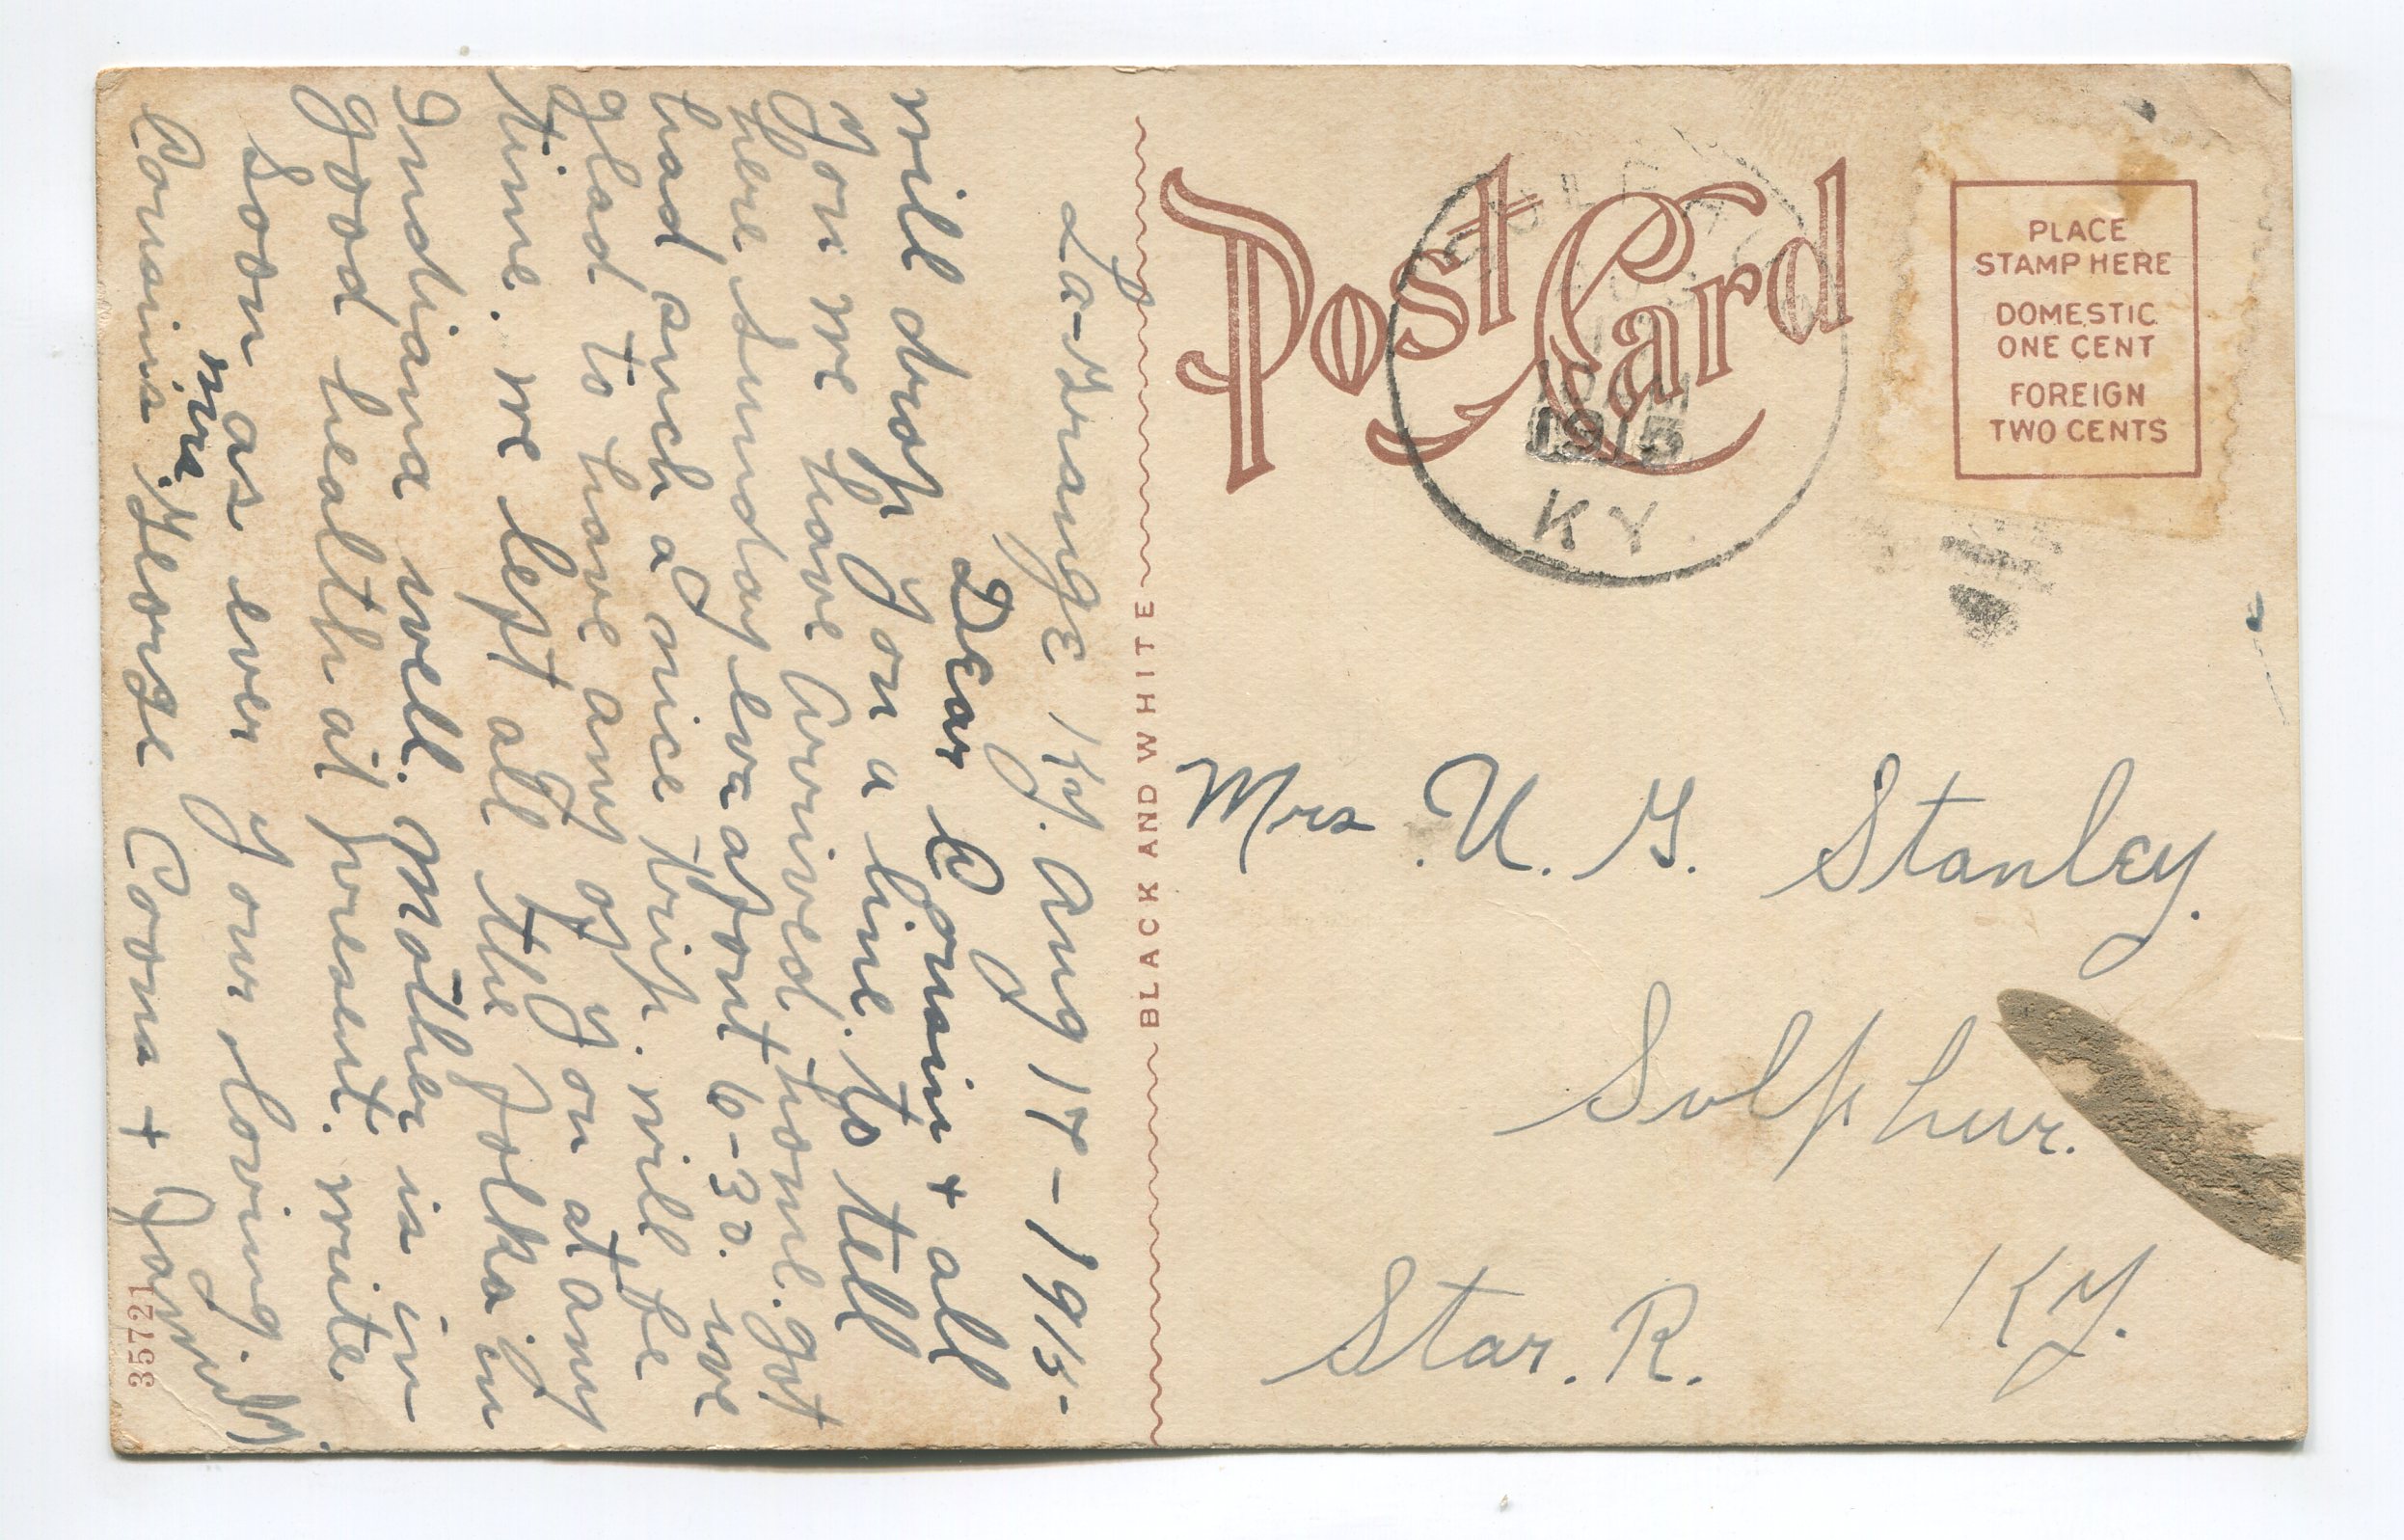 Post Card
PLACE
STAMP HERE
DOMESTIC
ONE CENT
FOREIGN
TWO CENTS
1915
KY.
BLACK AND WHITE
La-Grange Ky. Aug 17-1915-
Dear Cousin + all
will drop you a line. to tell
you we have arrived home. got
here Sunday eve afont 6-30. we
had such a nice trip. will be
glad to have any of you at any
time. we left all the folks in
Indiana well. Mother is in
good health at present. write
soon as ever your loving.
Cousins Mrs. George Coons +
Mrs U. G. Stanley.
Sulphur.
Ky.
Star. R.
35721